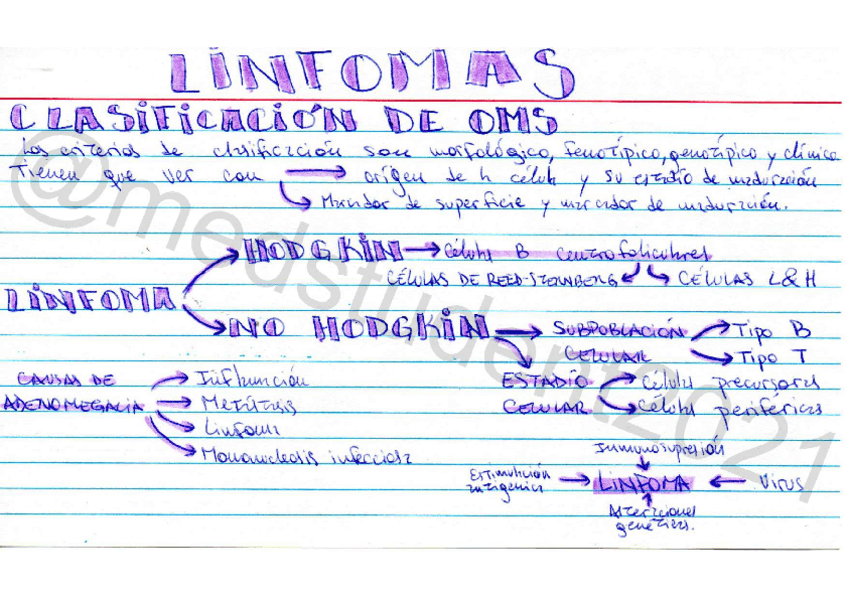 LINFOMAS
CLASIFICACIÓN DE OMS
Los criterios de clasificación son morfológico, fenotípico, genotípico y clínico
Tienen que ver con → origen de la célula y su estadío de maduración
→ Marcador de superficie y marcador de maduración.
LINFOMA
HODGKIN → Células B centrofoliculares
CÉLULAS DE REED-STERNBERG
CÉLULAS L&H
NO HODGKIN → SUBPOBLACIÓN CELULAR → Tipo B
→ Tipo T
ESTADÍO CELULAR → Células precursoras
→ Células periféricas
CAUSAS DE
ADENOMEGALIA
→ Inflamación
→ Metástasis
→ Linfoma
→ Mononucleosis infecciosa
Inmunosupresión
Estimulación
antigénica → LINFOMA ← Virus
Alteraciones
genéticas.
@medstudent2021